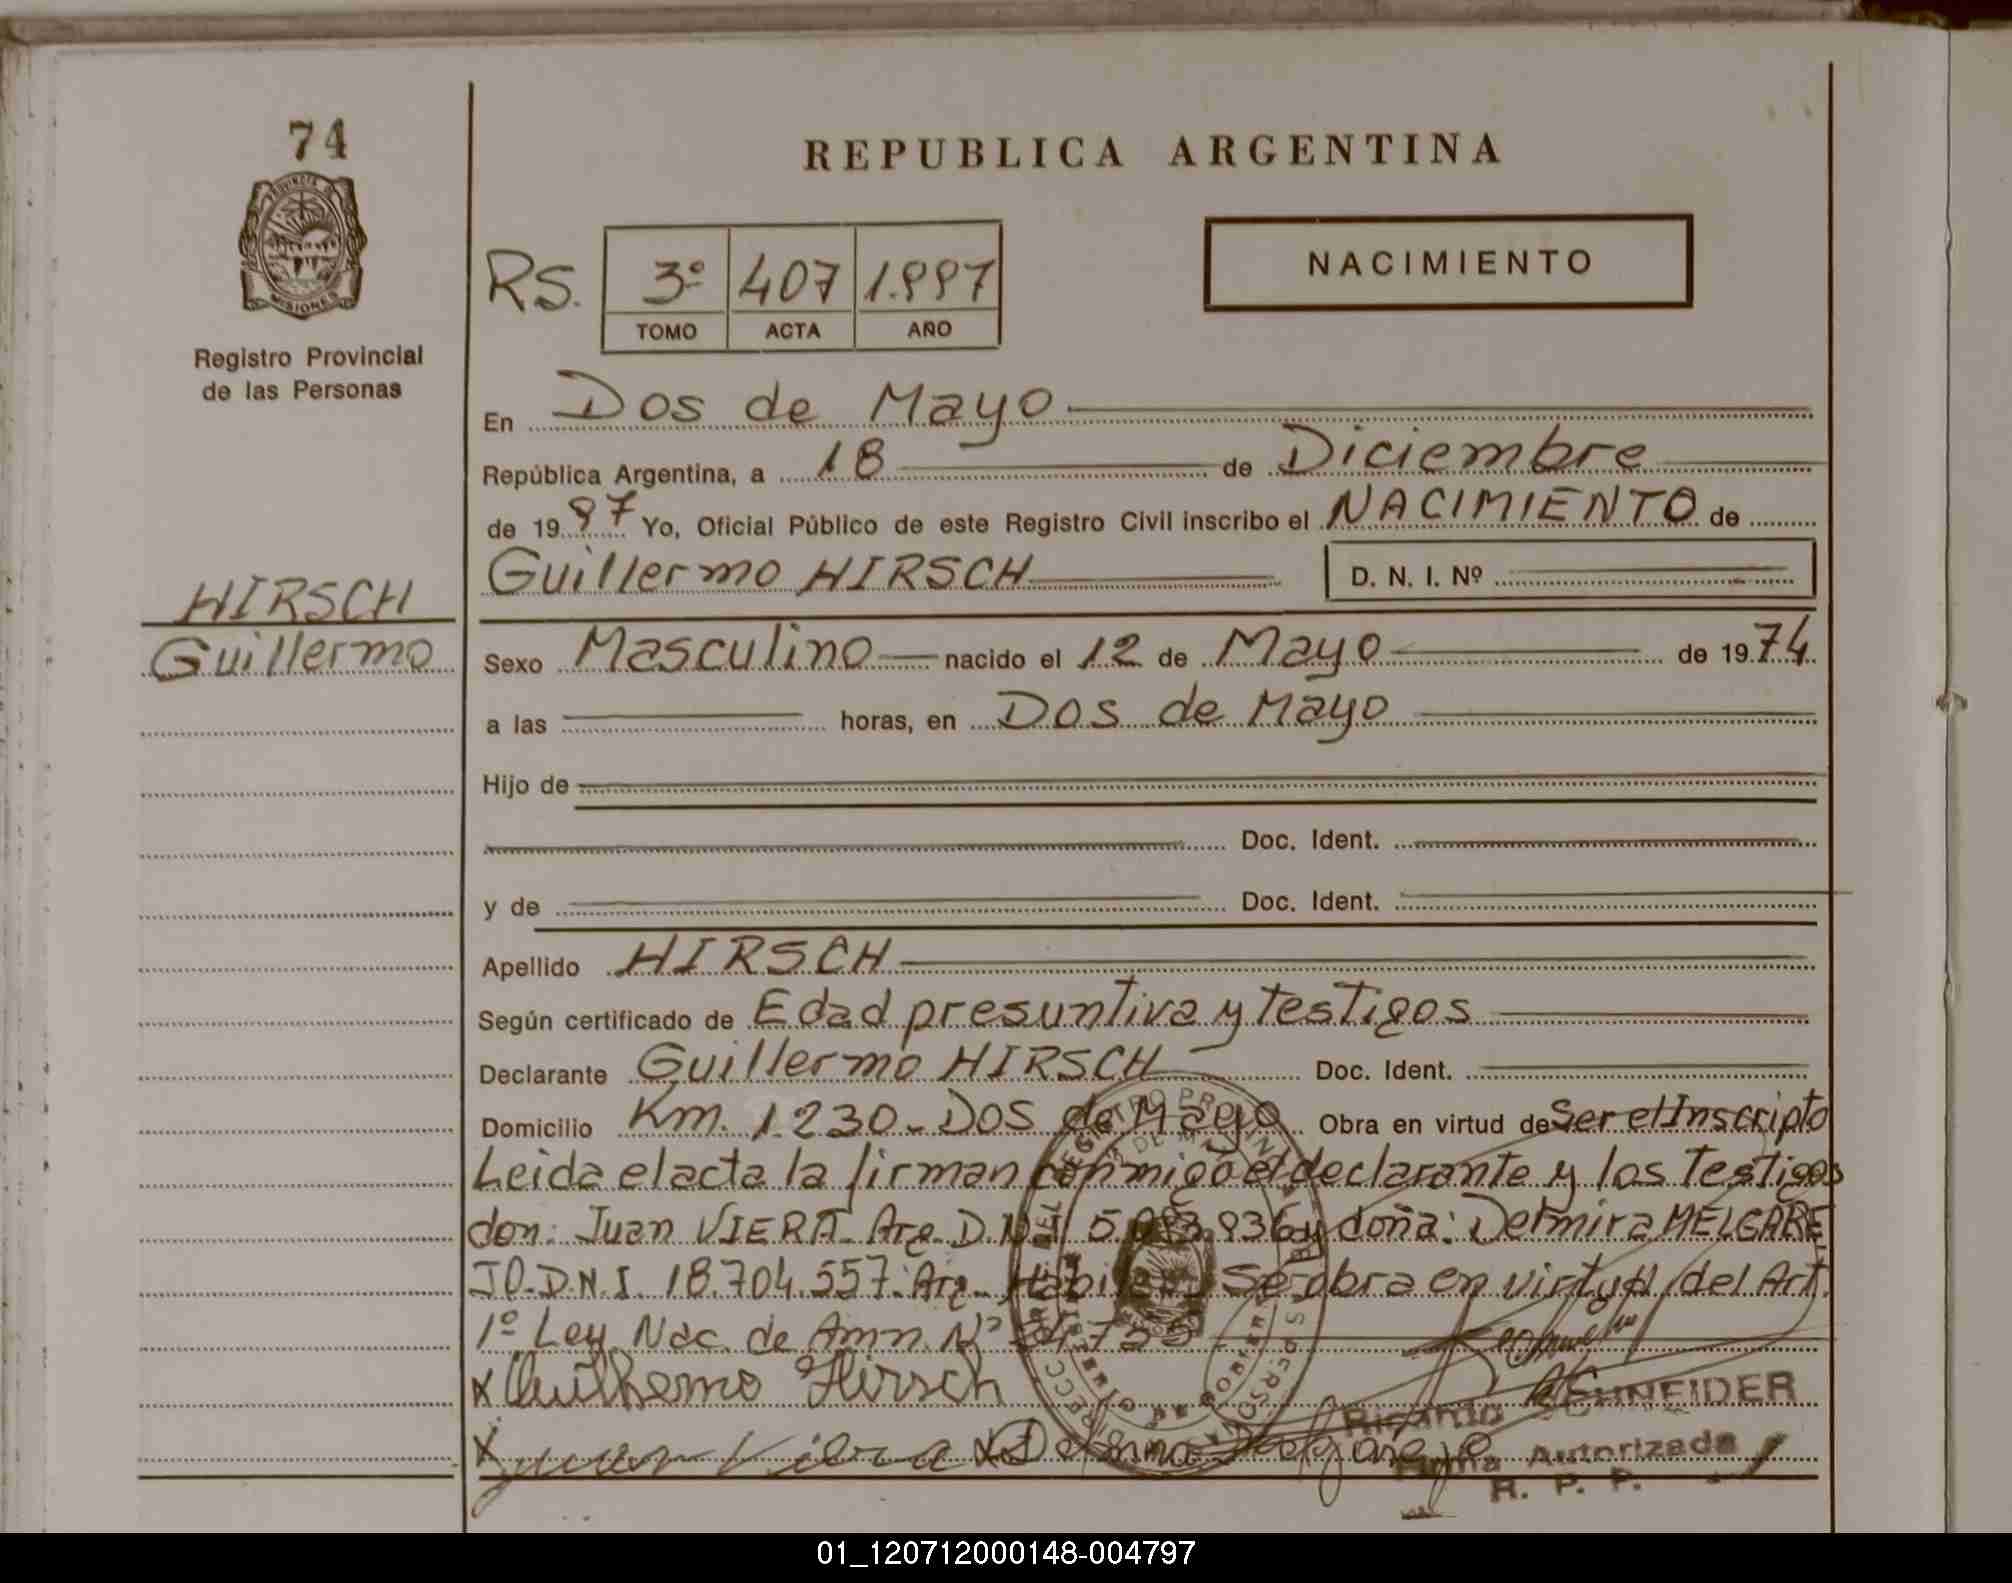 74
REPUBLICA ARGENTINA
MISIONES
Registro Provincial
de las Personas
RS. 3º 407 1.997
TOMO ACTA AÑO
NACIMIENTO
En Dos de Mayo
República Argentina, a 18 de Diciembre
de 19 97 Yo, Oficial Público de este Registro Civil inscribo el NACIMIENTO de
Guillermo HIRSCH D. N. I. Nº
HIRSCH
Guillermo
Sexo Masculino nacido el 12 de Mayo de 1974
a las horas, en Dos de Mayo
Hijo de
Doc. Ident.
y de Doc. Ident.
Apellido HIRSCH
Según certificado de Edad presuntiva y testigos
Declarante Guillermo HIRSCH Doc. Ident.
Domicilio Km. 1.230 - Dos de Mayo Obra en virtud de Ser el Inscripto
Leida el acta la firman conmigo el declarante y los testigos
don: Juan VIERA Arg. D.N.I. y doña: Delmira MELGARE
JO-D.N.I. 18.704.557. Arg. Se obra en virtud del Art.
1º Ley Nac. de Amn. Nº
x Guilhermo Hirsch
x Juan Viera x Delmira
Ricardo SCHNEIDER
Firma Autorizada
R. P. P.
01_120712000148-004797